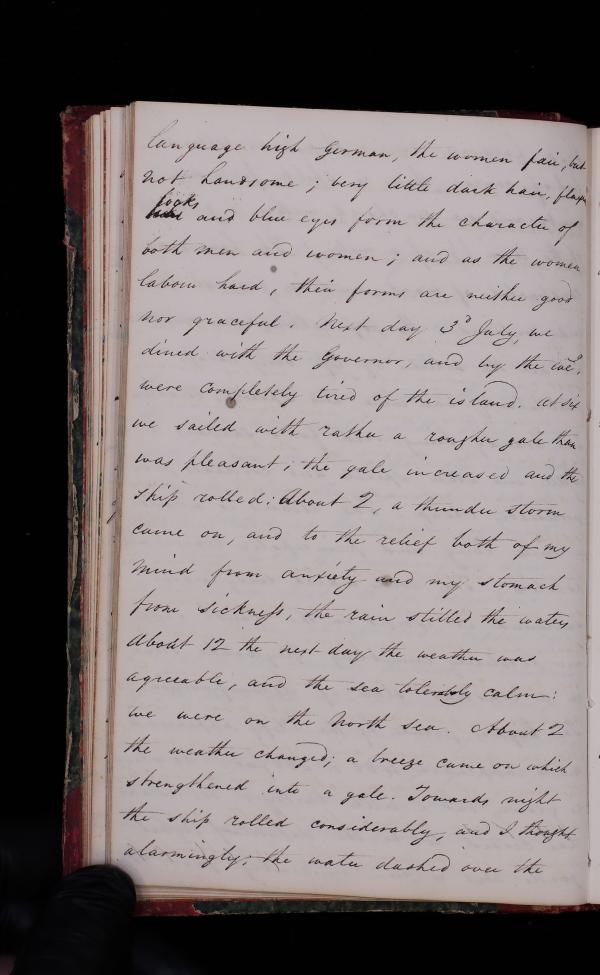 language high German, the women fair, but
not handsome; very little dark hair, flaxen
looks
and blue eyes form the character of
both men and women; and as the women
labour hard, their forms are neither good
nor graceful. Next day 3d July, we
dined with the Governor, and by the
were completely tired of the island. At six
we sailed with rather a rougher gale than
was pleasant; the gale increased and the
ship rolled: About 2, a thunder storm
came on, and to the relief both of my
mind from anxiety and my stomach
from sickness, the rain stilled the waters
About 12 the next day the weather was
agreeable, and the sea tolerably calm:
we were on the North sea. About 2
the weather changed; a breeze came on which
strengthened into a gale. Towards night
the ship rolled considerably, and I thought
alarmingly; the water dashed over the